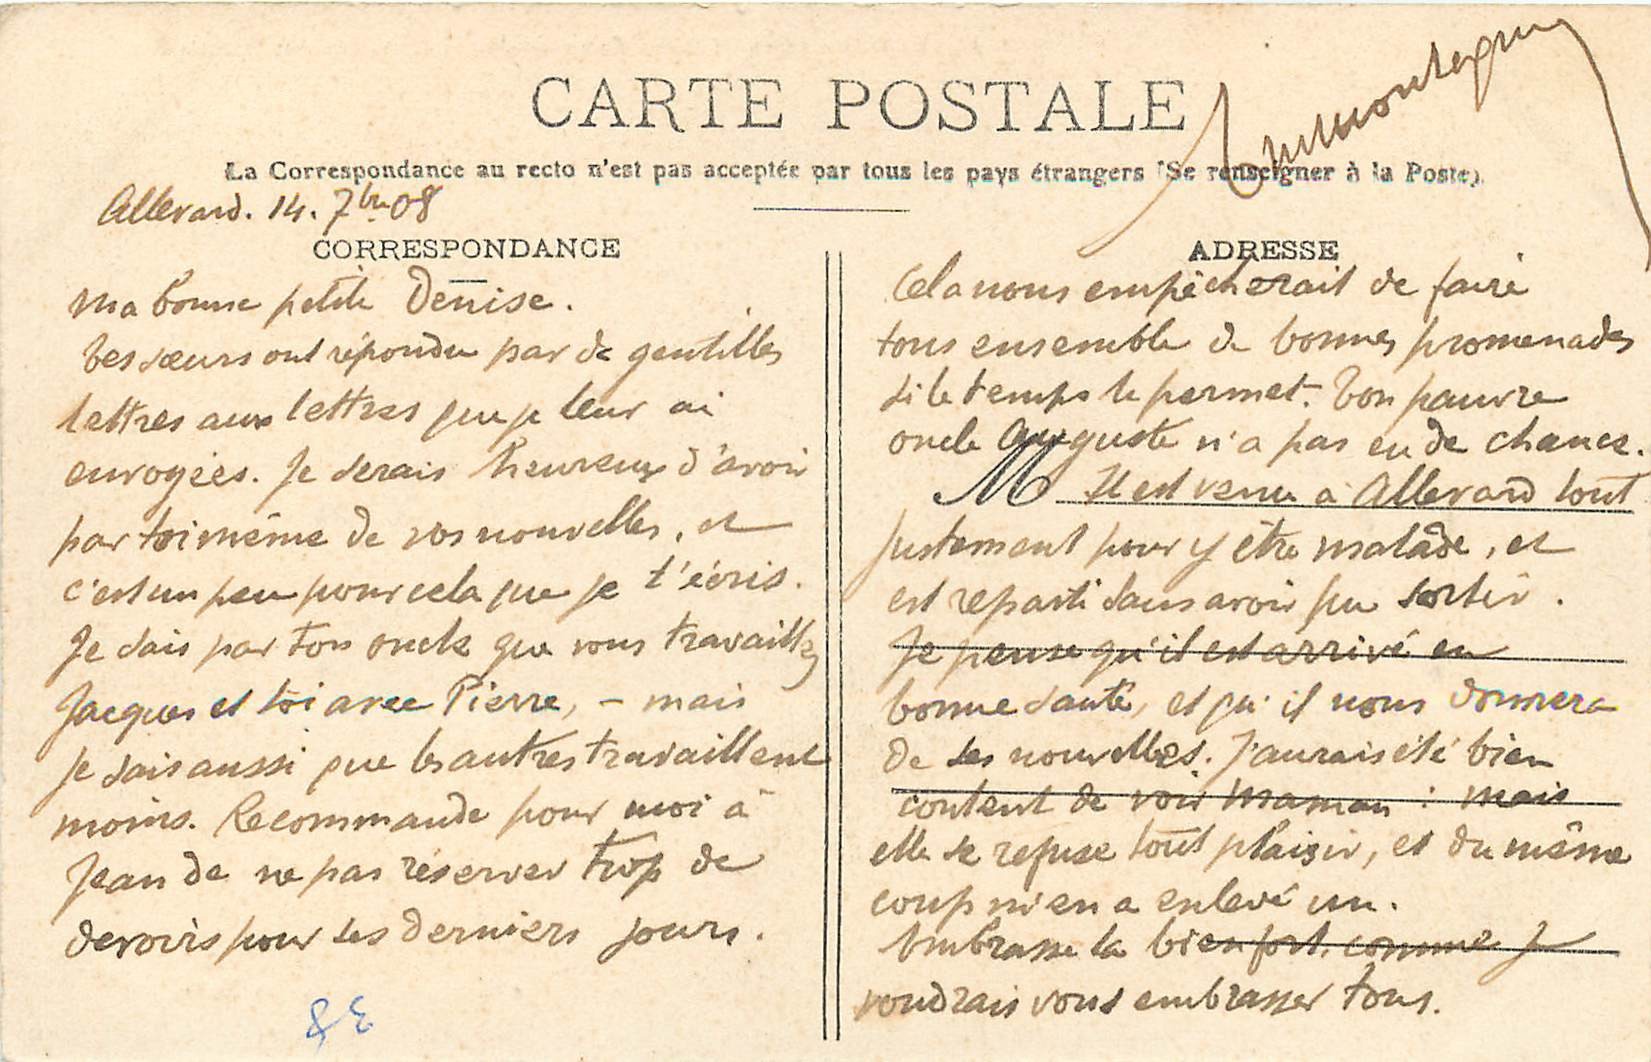 CARTE POSTALE
La Correspondance au recto n'est pas acceptée par tous les pays étrangers (Se renseigner à la Poste)
Allevard. 14. 7bre 08
CORRESPONDANCE
Ma bonne petite Denise.
Tes sœurs ont répondu par de gentilles
lettres aux lettres que je leur ai
envoyées. Je serais heureux d'avoir
par toi même de vos nouvelles, et
c'est un peu pour cela que je t'écris.
Je sais par ton oncle que vous travaillez
Jacques et toi avec Pierre, - mais
je sais aussi que les autres travaillent
moins. Recommande pour moi à
Jean de ne pas réserver trop de
devoirs pour les derniers jours.
ADRESSE
Cela nous empêcherait de faire
tous ensemble de bonnes promenades
si le temps le permet. Ton pauvre
oncle Auguste n'a pas eu de chance.
M Il est venu à Allevard tout
justement pour y être malade, et
est reparti sans avoir pu sortir.
Je pense qu'il est arrivé en
bonne santé, et qu'il nous donnera
de ses nouvelles. J'aurais été bien
content de voir Maman : mais
elle se refuse tout plaisir, et du même
coup m'en a enlevé un.
Embrasse la bien fort, comme je
voudrais vous embrasser tous.